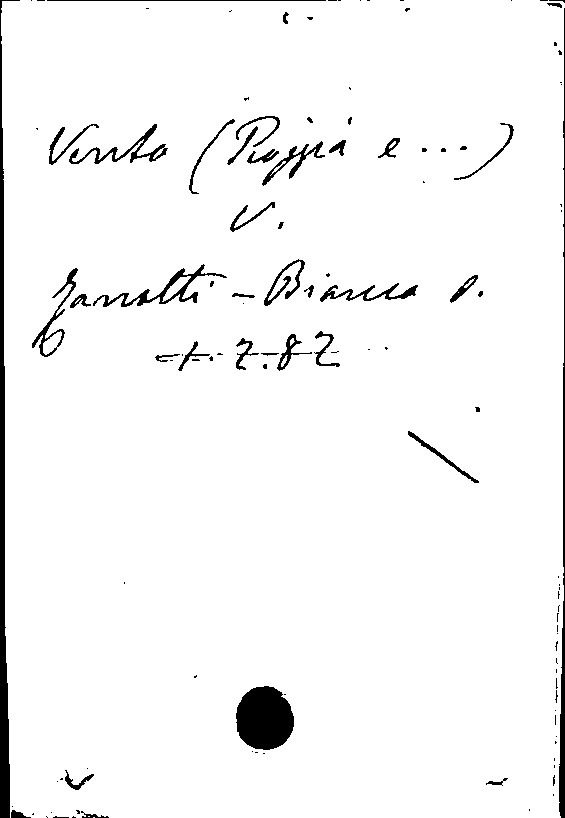 Vento (Pioggia e ...)
V.
Zanotti - Bianca s.
+. Z. 8Z